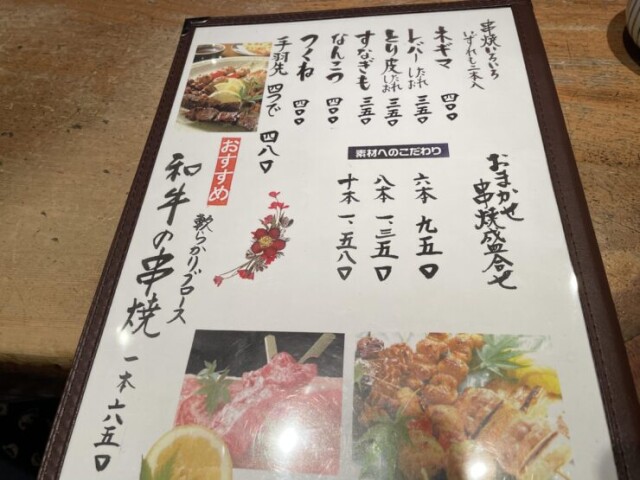 串焼いろいろ
いずれも二本入
ネギマ 四〇〇
レバー したれ しお 三五〇
とり皮 したれ しお 三五〇
すなぎも 三五〇
なんこつ 四〇〇
つくね 四〇〇
手羽先 四つで 四八〇
素材へのこだわり
おまかせ
串焼盛合せ
六本 九五〇
八本 一、三五〇
十本 一、五八〇
おすすめ
和牛の串焼
軟らかリブロース
一本 六五〇